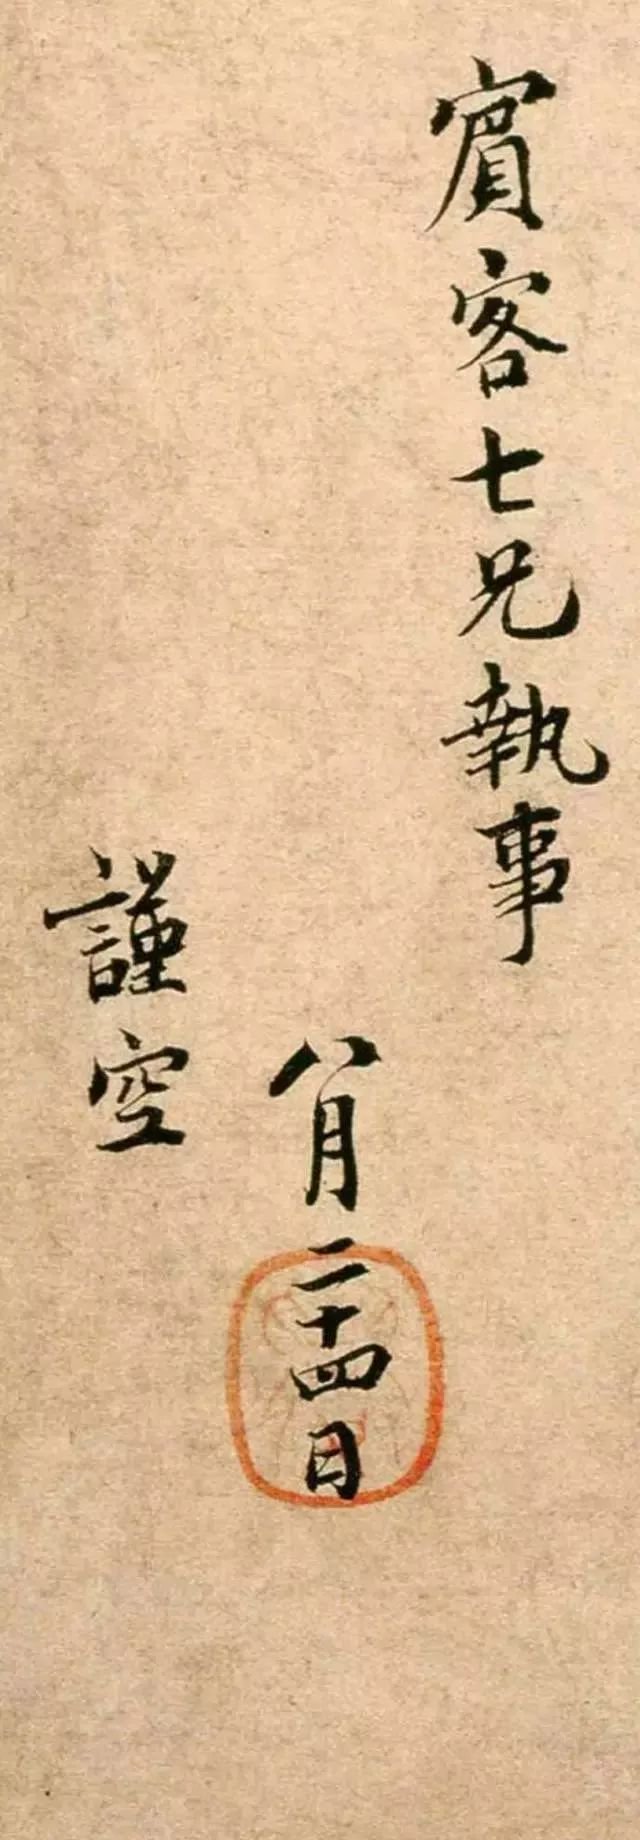 賓客七兄執事
八月二十四日
謹空